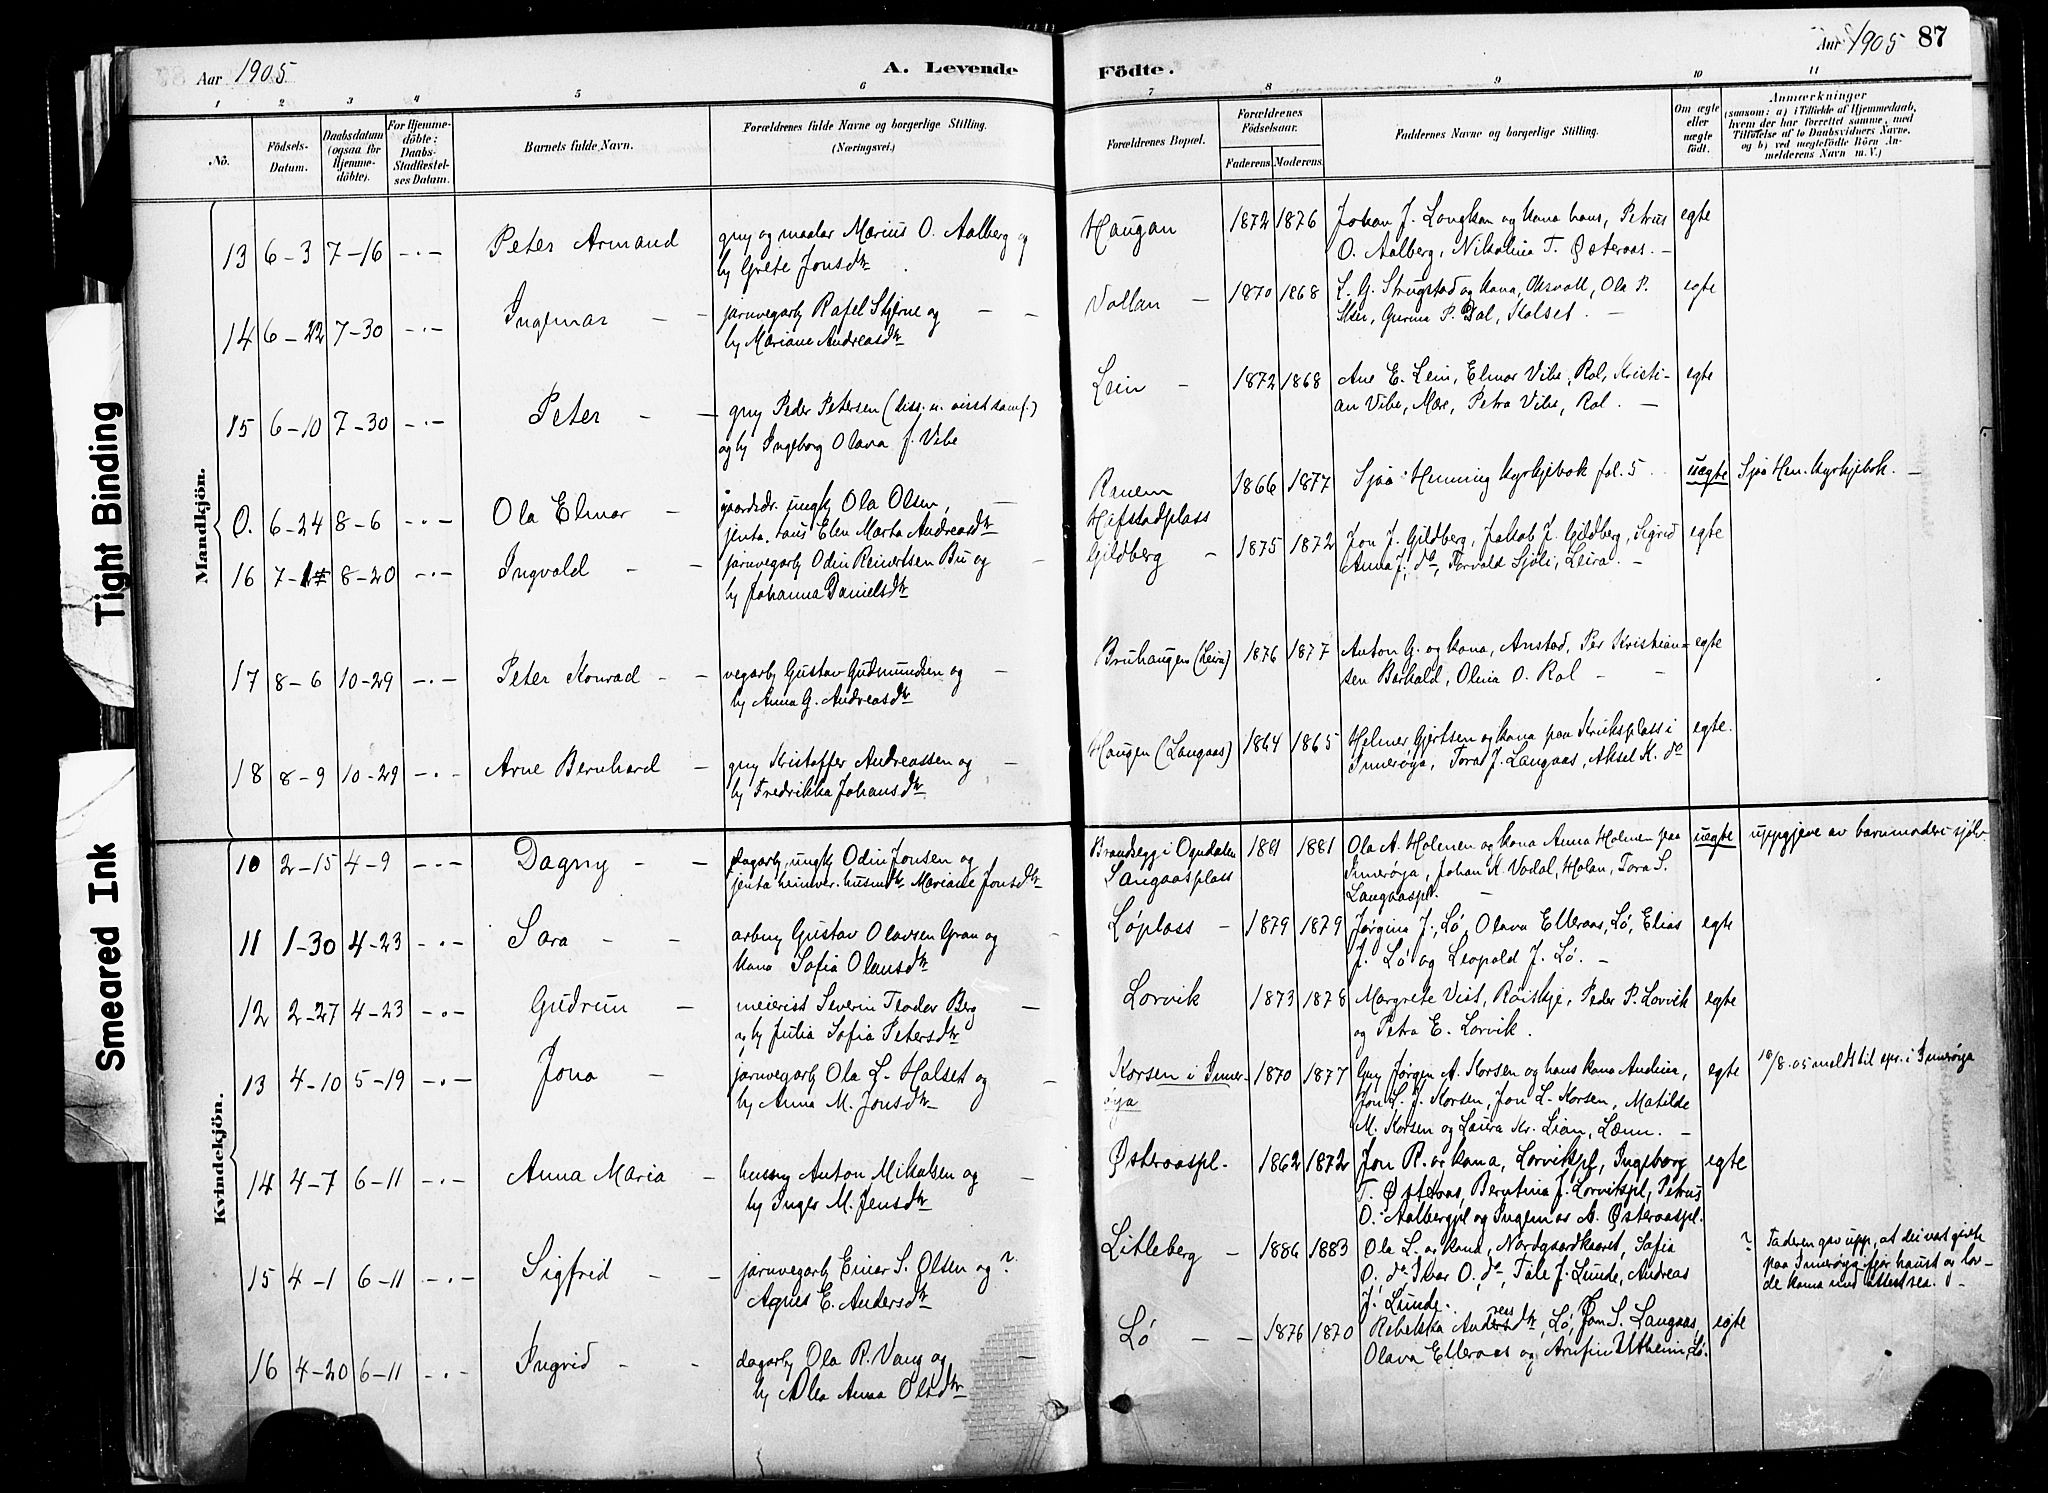 Aar 1905
A. Levende
Födte.
Aar 1905 87
1 2 3 4 5 6 7 8 9 10 11
No.
Födsels-
Datum.
Daabsdatum
(ogsaa for
Hjemme-
döbte).
For Hjemme-
döbte:
Daabs-
Stadfæstel-
ses Datum.
Barnets fulde Navn.
Forældrenes fulde Navne og borgerlige Stilling.
(Næringsvei.)
Forældrenes Bopæl.
Forældrenes
Födselsaar.
Faderens Moderens
Faddernes Navne og borgerlige Stilling.
Om ægte
eller
uægte
födt.
Anmærkninger
(saasom: a) i Tilfælde af Hjemmedaab,
hvem der har forrettet samme, med
Tilföielse af to Daabsvidners Navne,
og b) ved uægtefödte Börn An-
melderens Navn m. V.)
Tight Binding
Smeared Ink
Mandkjön.
13 6-3 7-16 -·- Peter Armand
gmy og maalar Marius O. Aalberg og
hy Grete Jonsdtr.
Haugan 1872 1876
Johan J. Langhan og kona hans, Petrus
O. Aalberg, Nikolina T. Østeraas. -
egte
14 6-22 7-30 -·- Ingemar - -
jarnvegarb Rafel Stjerne og - -
hy Mariane Andreasdtr
Vollan - 1870 1868
L. G. Strugstad og kona, Okvoll, Ola P.
Ster, Gurina P. Dal, Kolset. -
egte
15 6-10 7-30 -·- Peter - -
gmy Peder Petersen (diss. u. visst samf.)
og hy Ingeborg Olava f. Vibe
Lein - 1872 1868
Ane E. Lein, Elmar Vibe, Rol, Kristi-
an Vibe, Mære, Petra Vibe, Rol. -
egte
0. 6-24 8-6 -·- Ola Elmar -
gaardsdr. ungk Ola Olsen, -
jenta, taus Elen Marta Andreasdtr
Ranem
Hifstadplass
1866 1877
Sjaa Henning kyrkjebok fol. 5
uegte
Sjaa Hen. kyrkjebok. -
16 8-20 -·- Ingvald - -
jarnvegarb Odin Reinertsen Bu og -
hy Johanna Danielsdtr
Gildberg - 1875 1872
Jon J. Gildberg, Jakob J. Gildberg, Sigrid
Anna J. do, Torvald Sjøli, Leira. -
egte
17 8-6 10-29 -·- Peter Konrad - -
vegarb Gustav Gudmundsen og -
hy Anna G. Andreasdtr
Bruhaugen (Leira) 1876 1877
Anton G. og kona, Anstad, Per Kristian-
sen Barhald, Olina O. Rol - -
egte
18 8-9 10-29 -·- Arne Bernhard -
gmy Kristoffer Andreassen og -
hy Fredrikka Johansdtr
Haugen (Langaas) 1864 1865
Helmer Gjertsen og kona paa Kruksplass i
Inderøya, Tora J. Langaas, Aksel K. do
egte.
Kvindekjön.
10 2-15 4-9 -·- Dagny - -
dagarb, ungk Odin Jonsen og
jenta heimver. husmdtr Mariane Jonsdtr
Brandsegg i Ogndalen
Langaasplass
1881 1881
Ola A. Holmen og kona Anna Holmen paa
Innerøya, Johan K. Vadal, Holan, Tora S.
Langaaspl. -
uegte
uppgjeve av barnmoderi sjølv
11 1-30 4-23 -·- Sara - -
arbmy Gustav Olavsen Gran og -
kona Sofia Olausdtr
Løplass - 1879 1879
Jørgina J., Lø, Olava Elleraas, Lø, Elias
J. Lø og Leopold J. Lø. -
egte
12 2-27 4-23 -·- Gudrun -
meierist Severin Teodor Berg -
og hy Julia Sofia Petersdtr
Lorvik 1873 1878
Margrete Vist, Røiskje, Peder P. Lorvik
og Petra E. Lorvik.
egte
13 4-10 5-19 -·- Jona -
jarnvegarb Ola L. Halset og -
hy Anna M. Jonsdtr -
Korsen i Inner-
øya
1870 1877
Gmy Jørgen A. Korsen og hans kona Andrina,
Jon L. J. Korsen, Jon L. Korsen, Matilde
M. Korsen og Laura Kr. Lian, Lænn. -
egte
10/8.05 meldt til spr. i Innerøya
14 4-7 6-11 -·- Anna Maria -
husmy Anton Mikalsen og -
hy Inger M. Jensdtr
Østeraaspl. 1862 1872
Jon R. og kona, Lorvikspl, Ingeborg
T. Østeraas, Berntina J. Lorvikspl, Petrus
O. Aalbergpl og Ingemar A. Østeraaspl.
egte
15 4-1 6-11 -·- Sigfrid - -
jarnvegarb Einar S. Olsen og ?
Agnes E. Andersdtr
Litleberg - 1886 1883
Ola L. og kona, Nordgaardkaaret, Sofia
O. do Ivar O. do, Tale J. Lunde, Andreas
J. Lunde.
?
Faderen gav upp, at dei vart gifte
paa Innerøya ifjor haust og lov-
de koma med attest sea. -
16 4-20 6-11 -·- Ingrid - -
dagarb Ola R. Vang og -
hy Alea Anna Olsdtr
Lø - - 1876 1870
Rebekka Andersdtr, Lø, Jon S. Langaas,
Olava Elleraas og Arnfin Utheim, Lø.
egte